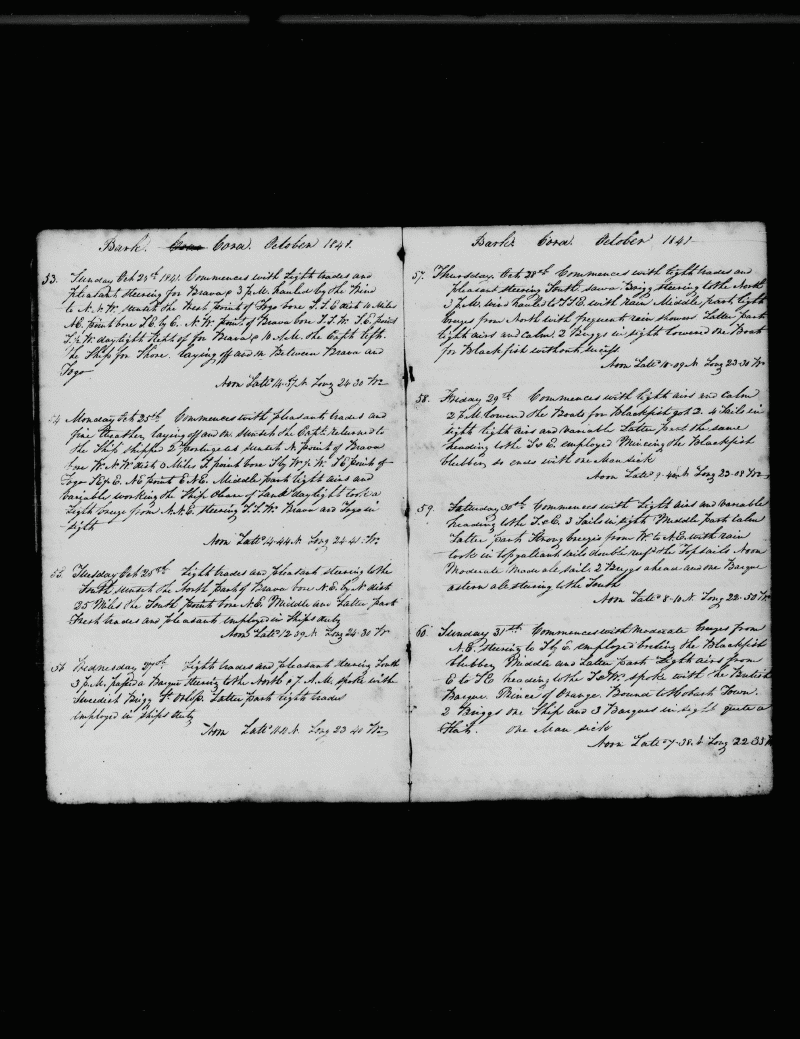 Bark. Cora. October 1841.
53. Sunday Oct 24th 1841. Commences with Light trades and
pleasant steering for Brava & 3 P.M. hauled by the Wind
to N.N.W. sunset the West point of Fogo bore S.S.E dist 10 Miles
N.E. point bore S.E. by E. N.W. point of Brava bore S.S.W. S.E. point
daylight Head of for Brava & 10 A.M. the Capt. left
the Ship for Shore. laying off and on Between Brava and
Fogo
Noon Latd 14-57 N Long 24-30 W
54 Monday Oct 25th Commences with pleasant trades and
fine Weather, laying off and on sunset the Capt. returned to
the Ship shipped 2 Portugees sunset N. point of Brava
bore W.N.W dist 6 Miles S. point bore S by W S.E. point of
Fogo N.E. point E.N.E. Middle part light airs and
variable working the Ship clear of Land daylight took a
Light breeze from N.N.E. steering S.S.W. Brava and Fogo in
sight
Noon Latd 14-44 N. Long 24-41. W.
55. Tuesday Oct 26th Light trades and pleasant steering to the
South sunset the North part of Brava bore N.E. by N. dist
25 Miles the South point bore N.E. Middle and Latter part
Fresh trades and pleasant employed in Ships duty
Noon Latd 12-39 N. Long 24-30 W
56 Wednesday 27th. Light trades and pleasant steering South
3 P.M. passed a Barque Steering to the North & 7 A.M. spoke with
Swedish Brigg Latter part light trades
employed in Ships duty
Noon Latd 11-11 N. Long 23 40 W
Bark. Cora. October 1841
57. Thursday Oct 28th Commences with light trades and
pleasant steering South. saw a Brigg steering to the North
3 P.M. wind hauled to S.S.E. with rain Middle part light
breezes from North with frequent rain showers Latter part
light airs and calm. 2 Briggs in sight lowered one Boat
for Blackfish without success
Noon Latd 10-09 N Long 23-30 W
58. Friday 29th Commences with light airs and calm
2 P.M. lowered the Boats for Blackfish got 2. 4 Sails in
sight light airs and variable Latter part the same
heading to the S & E employed Mincing the Blackfish
blubber so ends with one Man sick
Noon Latd 9-44 N Long 23-08 W
59. Saturday 30th Commences with Light airs and variable
heading to the S & E. 3 Sails in sight Middle part calm
Latter part Strong breezes from W to N.E. with rain
took in topgallant sails double reef'd the Topsails Noon
Moderate made all sail. 2 Briggs ahead and one Barque
astern all steering to the South
Noon Latd 8-10 N. Long 22-50 W.
60. Sunday 31st Commences with moderate breezes from
N.E. steering to S by E. employed boiling the Blackfish
blubber Middle and Latter part Light airs from
E to S.E heading to the S & W. spoke with the British
Barque Prince of Orange. Bound to Hobart Town.
2 Briggs one Ship and 3 Barques in sight quite a
Fleet. one Man sick
Noon Latd 7-38. N Long 22-33 W